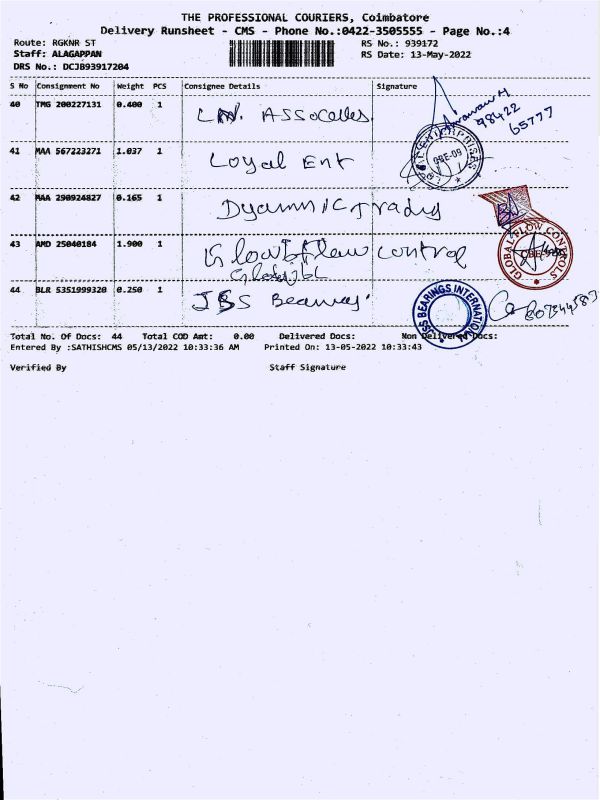 THE PROFESSIONAL COURIERS, Coimbatore
Delivery Runsheet - CMS - Phone No.:0422-3505555 - Page No.:4
Route: RGKNR ST
RS No.: 939172
Staff: ALAGAPPAN
RS Date: 13-May-2022
DRS No.: DCJB93917204
S No Consignment No Weight PCS Consignee Details Signature
40 TMG 200227131 0.400 1 L.N. Assocates
98422
65777
41 MAA 567223271 1.037 1 Loyal Ent
42 MAA 290924827 0.165 1 Dyamnic Tradig
43 AMD 25040184 1.900 1 Control
GLOBAL FLOW CONTROLS
44 BLR 5351999320 0.250 1 JSS
JSS BEARINGS INTERNATIONAL
Total No. Of Docs: 44 Total COD Amt: 0.00 Delivered Docs: Non Delivered Docs:
Entered By :SATHISHCMS 05/13/2022 10:33:36 AM Printed On: 13-05-2022 10:33:43
Verified By Staff Signature